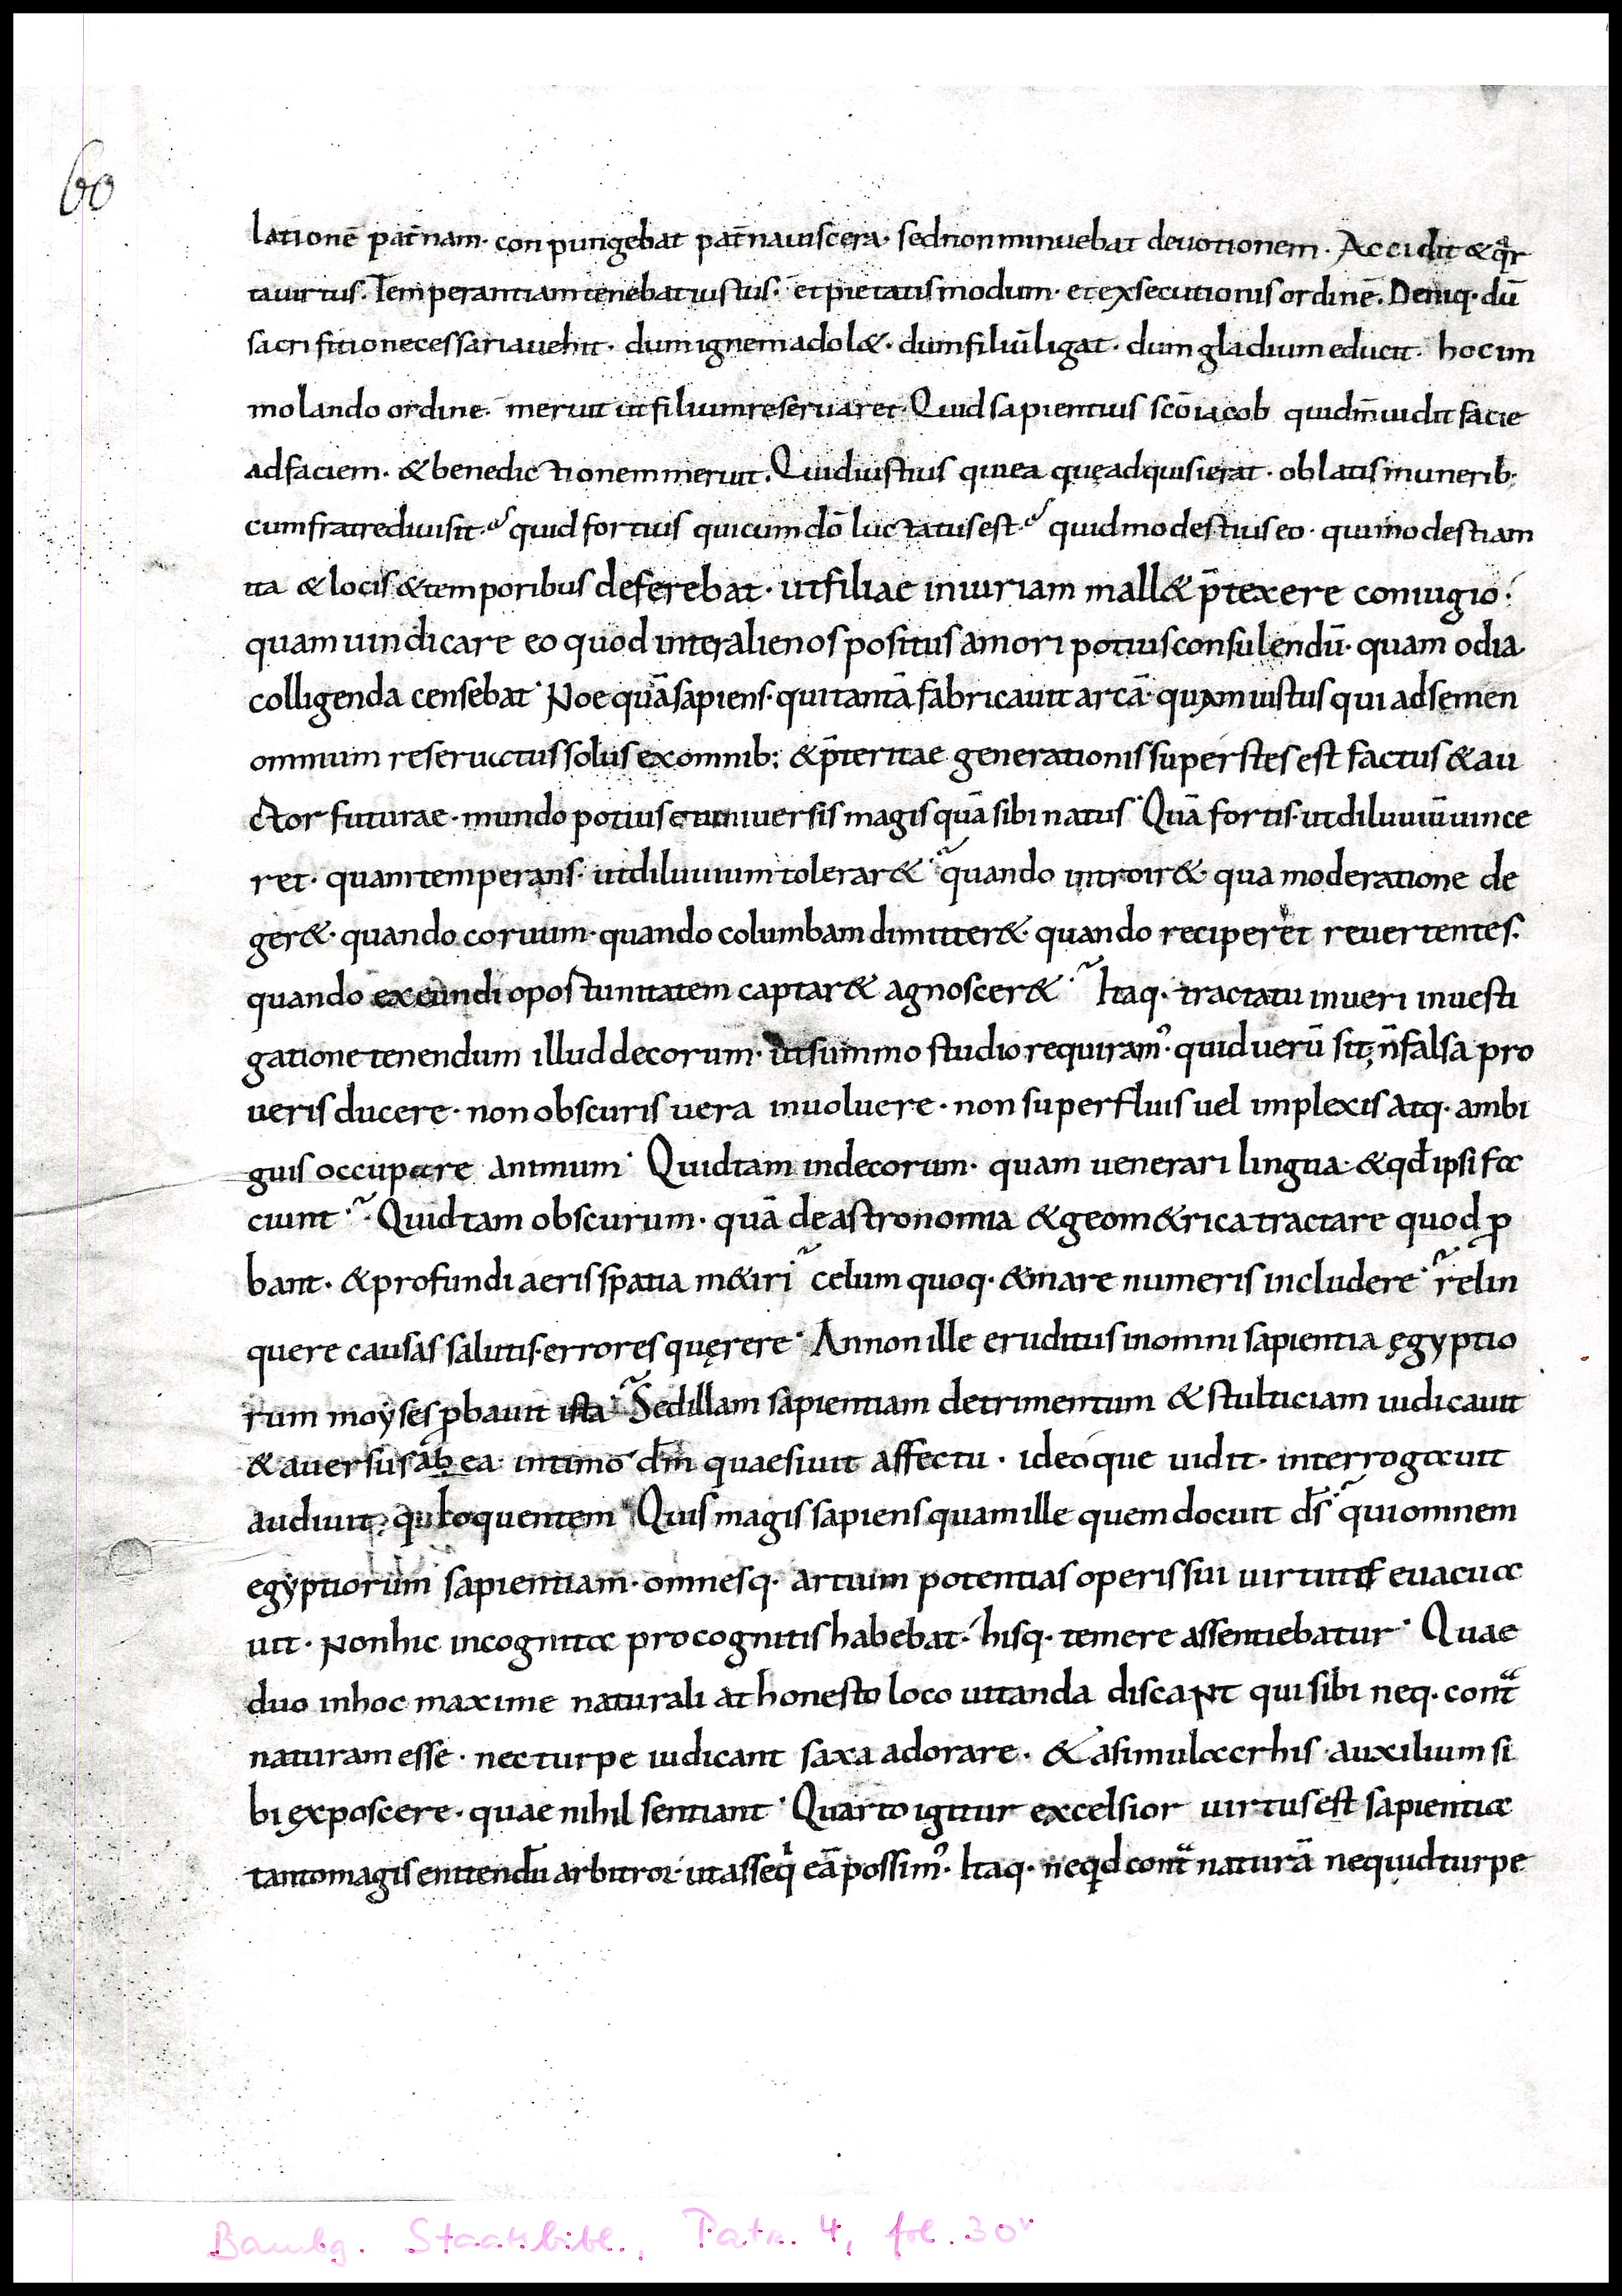 60
lationē pat̄nam· con pungebat pat̄nauiscera· sed non minuebat deuotionem· Accidit & qͣr
ta uirtus. Temperantiam tenebat iustus· et pietatis modum· et exsecutionis ordinē. Deniq· dū
sacrifitio necessaria uehit· dum ignem adol&· dum filiū ligat· dum gladium educit· hoc im
molando ordine· meruit ut filium reseruaret· Quid sapientius scō iacob quid m̄ uidit facie
ad faciem· & benedictionem meruit. Quid iustius qui ea quę adquisierat· oblatis munerib;
cum fratre diuisit· quid fortius qui cum dō luctatus est· quid modestius eo· qui modestiam
ita & locis & temporibus deferebat· ut filiae iniuriam mall& p̄texere coniugio·
quam uindicare eo quod inter alienos positus amori potius consulendū· quam odia
colligenda censebat· Noe quā sapiens· qui tantā fabricauit arcā· quam iustus qui ad semen
omnium reseruatus solus ex omnib; & p̄teritae generationis superstes est factus & au
ctor futurae· mundo potius et uniuersis magis quā sibi natus· Quā fortis· ut diluuiū uince
ret· quam temperans· ut diluuium tolerar&· quando introir&· qua moderatione de
ger&· quando coruum· quando columbam dimitter&· quando reciperet reuertentes.
quando exeundi opostunitatem captar& agnoscer&· Itaq· tractatu in ueri inuesti
gatione tenendum illud decorum· ut summo studio requiramꝰ· quid uerū sit, n̄ falsa pro
ueris ducere· non obscuris uera inuoluere· non superfluis uel implexis atq· ambi
guis occupare animum· Quid tam indecorum· quam uenerari lingua· & qđ ipsi fa
ciunt· Quid tam obscurum· quā de astronomia & geom&rica tractare quod ꝓ
bant· & profundi aeris spatia m&iri celum quoq· & mare numeris includere· relin
quere causas salutis· errores quęrere· An non ille eruditus in omni sapientia ęgyptio
rum moyses ꝓbauit ista· Sed illam sapientiam detrimentum & stulticiam iudicauit
& auersus ab ea· intimo dm̄ quaesiuit affectu· ideoque uidit· interrogauit
audiuit, loquentem· Quis magis sapiens quam ille quem docuit ds̄· qui omnem
egyptiorum sapientiam· omnesq· artium potentias operis sui uirtute euacua
uit· Non hic incognita pro cognitis habebat· hisq· temere assentiebatur· Quae
duo in hoc maxime naturali at honesto loco uitanda discant qui sibi neq· contͣ
naturam esse· nec turpe iudicant saxa adorare· & a simulacrhis auxilium si
bi exposcere· quae nihil sentiant· Quarto igitur excelsior uirtus est sapientia
tanto magis enitendū arbitror· ut asseqͥ eā possimꝰ· Itaq· neqd contͣ naturā nequid turpe
Bambg. Staatsbibl., Patr. 4, fol. 30ᵛ